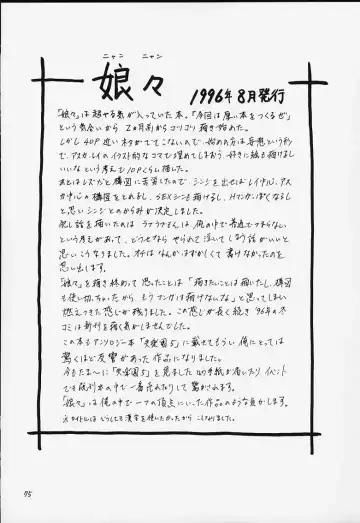 ニャン ニャン
娘々
1996年8月発行
「娘々」は超やる気が入っていた本。「今回は厚い本をつくるぜ」
という気合いから 2ヵ月前からコリコリ描き始めた。
しかし40P近いネタがでてこないので、始めの方は妄想という形
で、アスカ、レイのイラスト的なコマで埋めてしまおう 好きに絵も描けるし
いいなという考えで10Pくらい描いた。
あとはレズだと構図に苦労したので、シンジを出せばレイナル、アス
カ中心の構図をとれるし、SEXシーンも描けるし、Hマンガぽくなるぞ
と思いシンジとのからみが決定しました。
という考えがあって、どうせなら やられて 泣いてしまう話がいいと
思いこうなりました。オチは なんかはずかしくて 書けなかったのを
思い出します。
「娘々」を描き終わって思ったことは「描きたいことは描いたし、構図
も使い切っちゃったから もうマンガは描けないんな」と思ってしまい
燃えつきた感じが残りました。この感じが長く続き '96年の冬
コミは新刊を描く気がしませんでした。
この本もアンソロジー本「失楽園5」に載せてもらい 俺にとっては
驚くほど反響があった作品になりました。
今もたまーに「失楽園5」を見ましたの手紙が届いたり イベント
でも既刊本の中で一番売れたりして驚かされます。
「娘々」は俺の中で一つの頂点にいった作品のような気がします。
※タイトルは どうしても漢字を使いたかったから こうなりました。
75